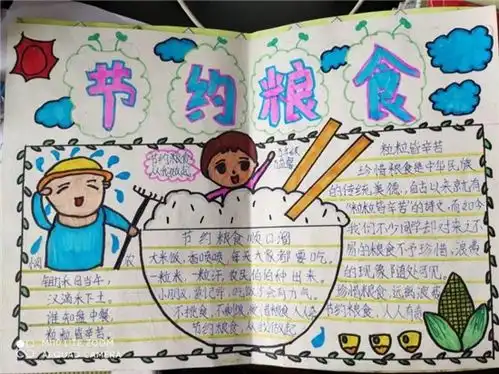 节约粮食
节约粮食
从我做起
悯农
锄禾日当午，
汗滴禾下土。
谁知盘中餐
粒粒皆辛苦。
节约粮食顺口溜
大米饭，香喷喷，每天大家都要吃。
一粒米，一汗，农民伯伯种出来。
小朋友，要记牢，吃饭
不挑食，不剩饭，粮食人人
节约粮食，从我做起
粒粒皆辛苦
珍惜粮食是中华民族
的传统美德，自古以来就有
"粒粒皆辛苦"的诗史，而如今
我们不少同学却对来之不
易的粮食不予珍惜，浪费
的现象随处可见。
珍惜粮食，远离浪费
节约粮食，人人有责
MI 10 LITE ZOOM
AI QUAD CAMERA